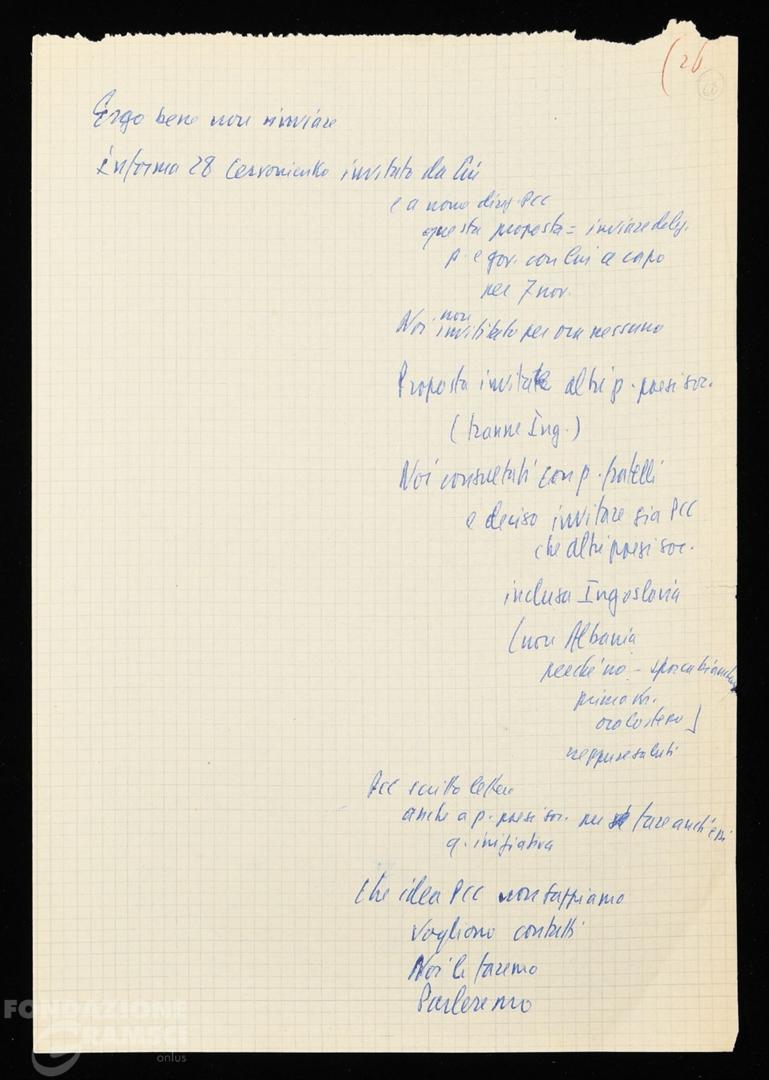 (26
Ergo bene non rinviare
Informa 28 Cervonienko invitato da Ciu
e a nome dirig. PCC
questa proposta = inviare deleg.
p. e gov. con Ciu a capo
per 7 nov.
Noi non invititato per ora nessuno
Proposta invitate altri p. paesi soc.
(tranne Iug.)
Noi consultati con p. fratelli
e deciso invitare sia PCC
che altri paesi soc.
inclusa Iugoslavia
(non Albania
perché no -
prima
ora lo stesso)
neppure saluti
PCC scritto lettere
anche a p. paesi soc. per fare anch'essi
q. iniziativa
Che idea PCC non sappiamo
Vogliono contatti
Noi li faremo
Parleremo
FONDAZIONE
GRAMSCI
onlus